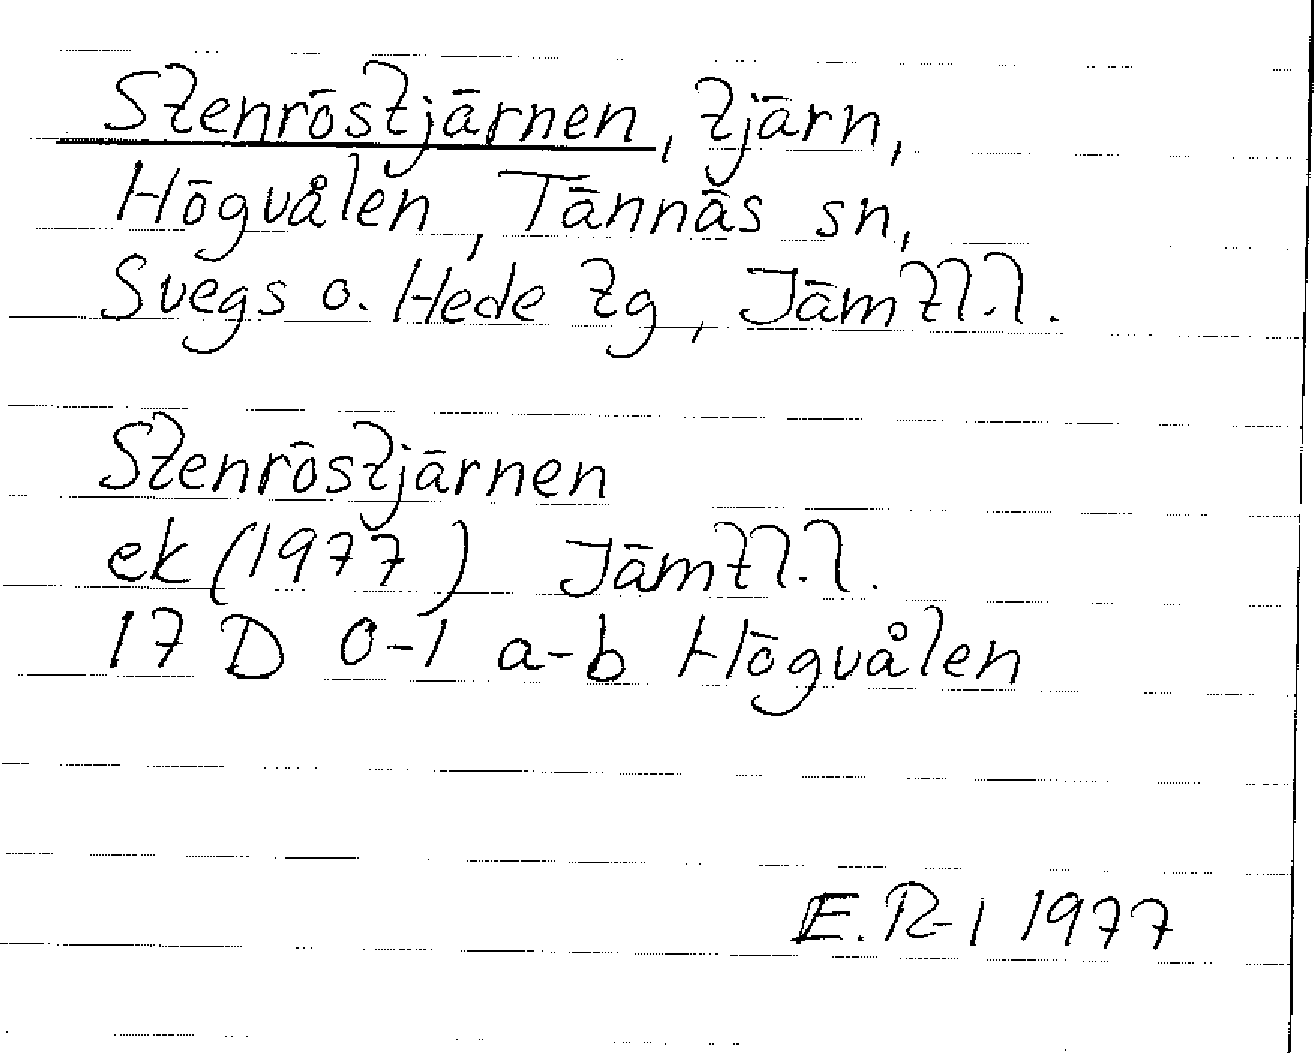 Stenröstjärnen, tjärn,
Högvålen, Tännäs sn,
Svegs o. Hede tg, Jämtl.l.
Stenröstjärnen
ek (1977) Jämtl.l.
17 D 0-1 a-b Högvålen
E.R-l 1977